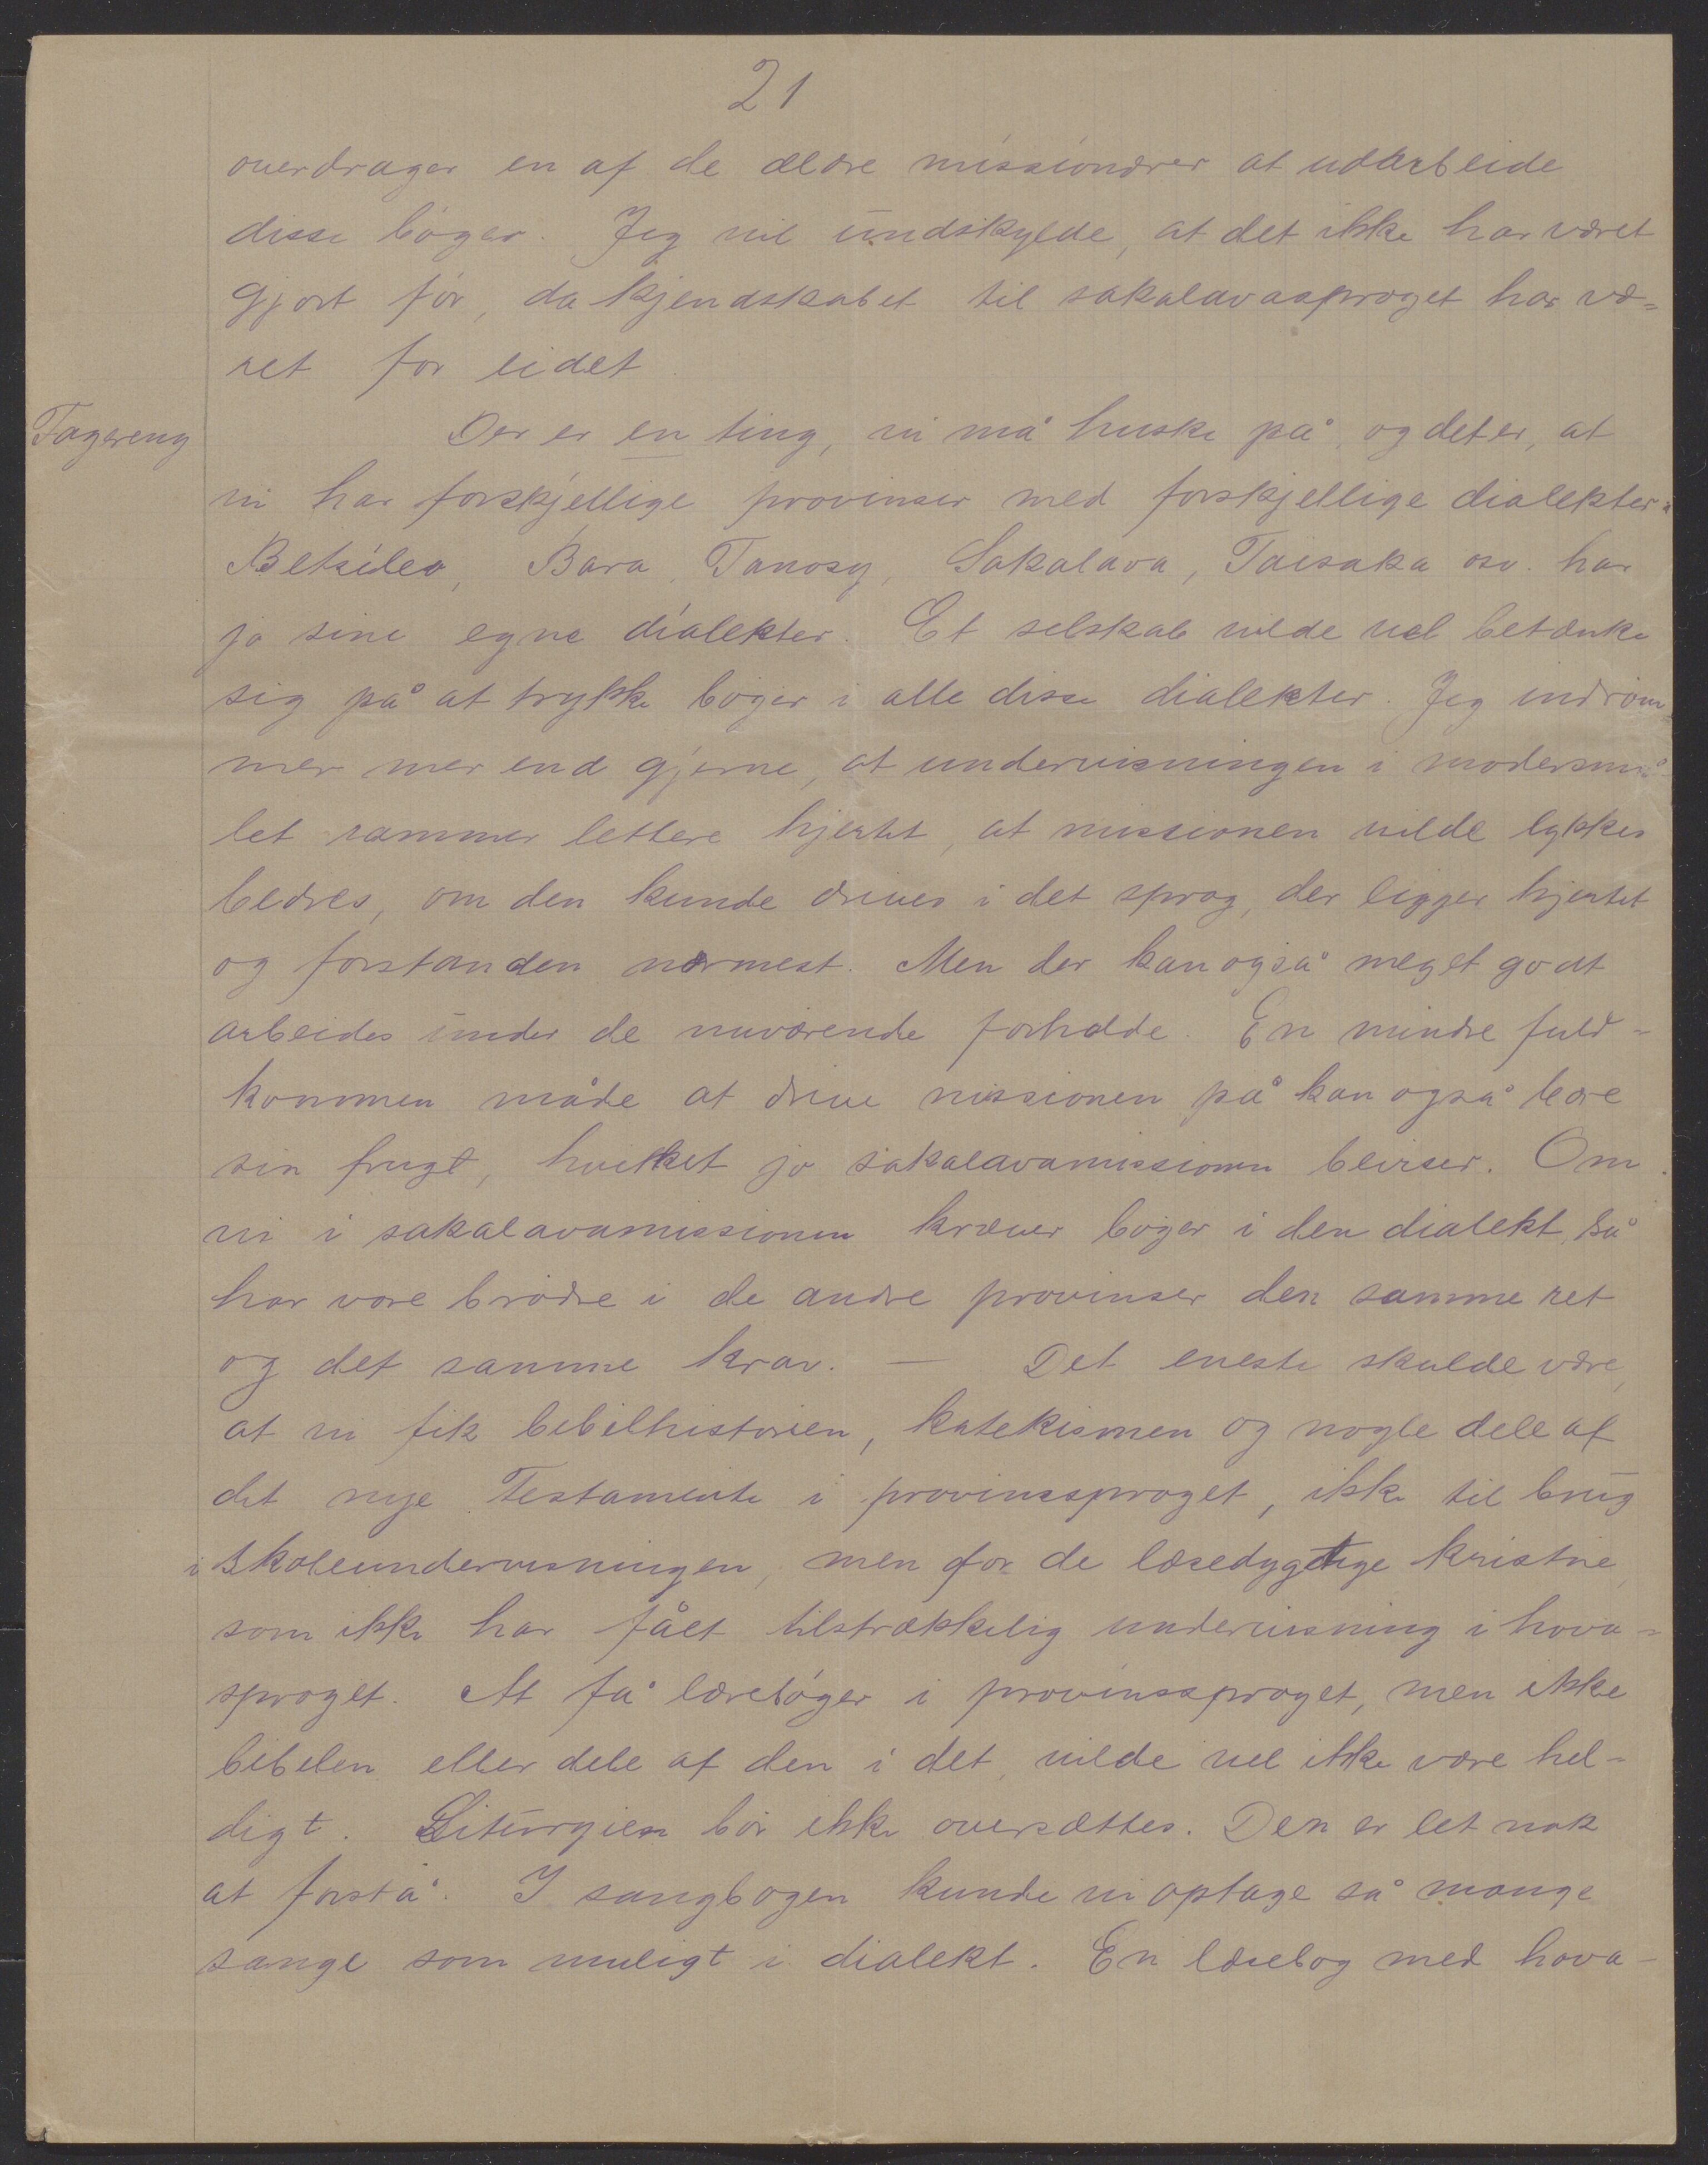 21
overdrager en af de ældre missionærer at udarbeide
disse bøger. Jeg vil undskylde, at det ikke har været
gjort før, da kjendskabet til sakalavasproget har væ=
ret for lidet.
Fagereng
Der er en ting, vi må huske på, og det er, at
vi har forskjellige provinser med forskjellige dialekter.
Betsileo, Bara, Tanosy, Sakalava, Taisaka osv. har
jo sine egne dialekter. Et selskab vilde vel betænke
sig på at trykke bøger i alle disse dialekter. Jeg indrøm
mer mer end gjerne, at undervisningen i modersmå-
let rammer lettere hjertet, at missionen vilde lykkes
bedres, om den kunde drives i det sprog, der ligger hjertet
og forstanden nærmest. Men der kan også meget godt
arbeides under de nuværende forholde. En mindre fuld=
kommen måde at drive missionen på kan også bære
sin frugt, hvilket jo sakalavamissionen beviser. Om
vi i sakalavamissionen kræver bøger i den dialekt, så
har vore brødre i de andre provinser den samme ret
og det samme krav. — Det eneste skulde være,
at vi fik bibelhistorien, katekismen og nogle dele af
det nye Testamente i provinssproget, ikke til brug
i skoleundervisningen, men for de læsedygtige kristne,
som ikke har fået tilstrækkelig undervisning i hova=
sproget. At få lærebøger i provinssproget, men ikke
bibelen eller dele af den i det, vilde vel ikke være hel=
digt. Liturgien bør ikke oversættes. Den er let nok
at forstå. I sangbogen kunde vi optage så mange
sange som muligt i dialekt. En lærebog med hova-